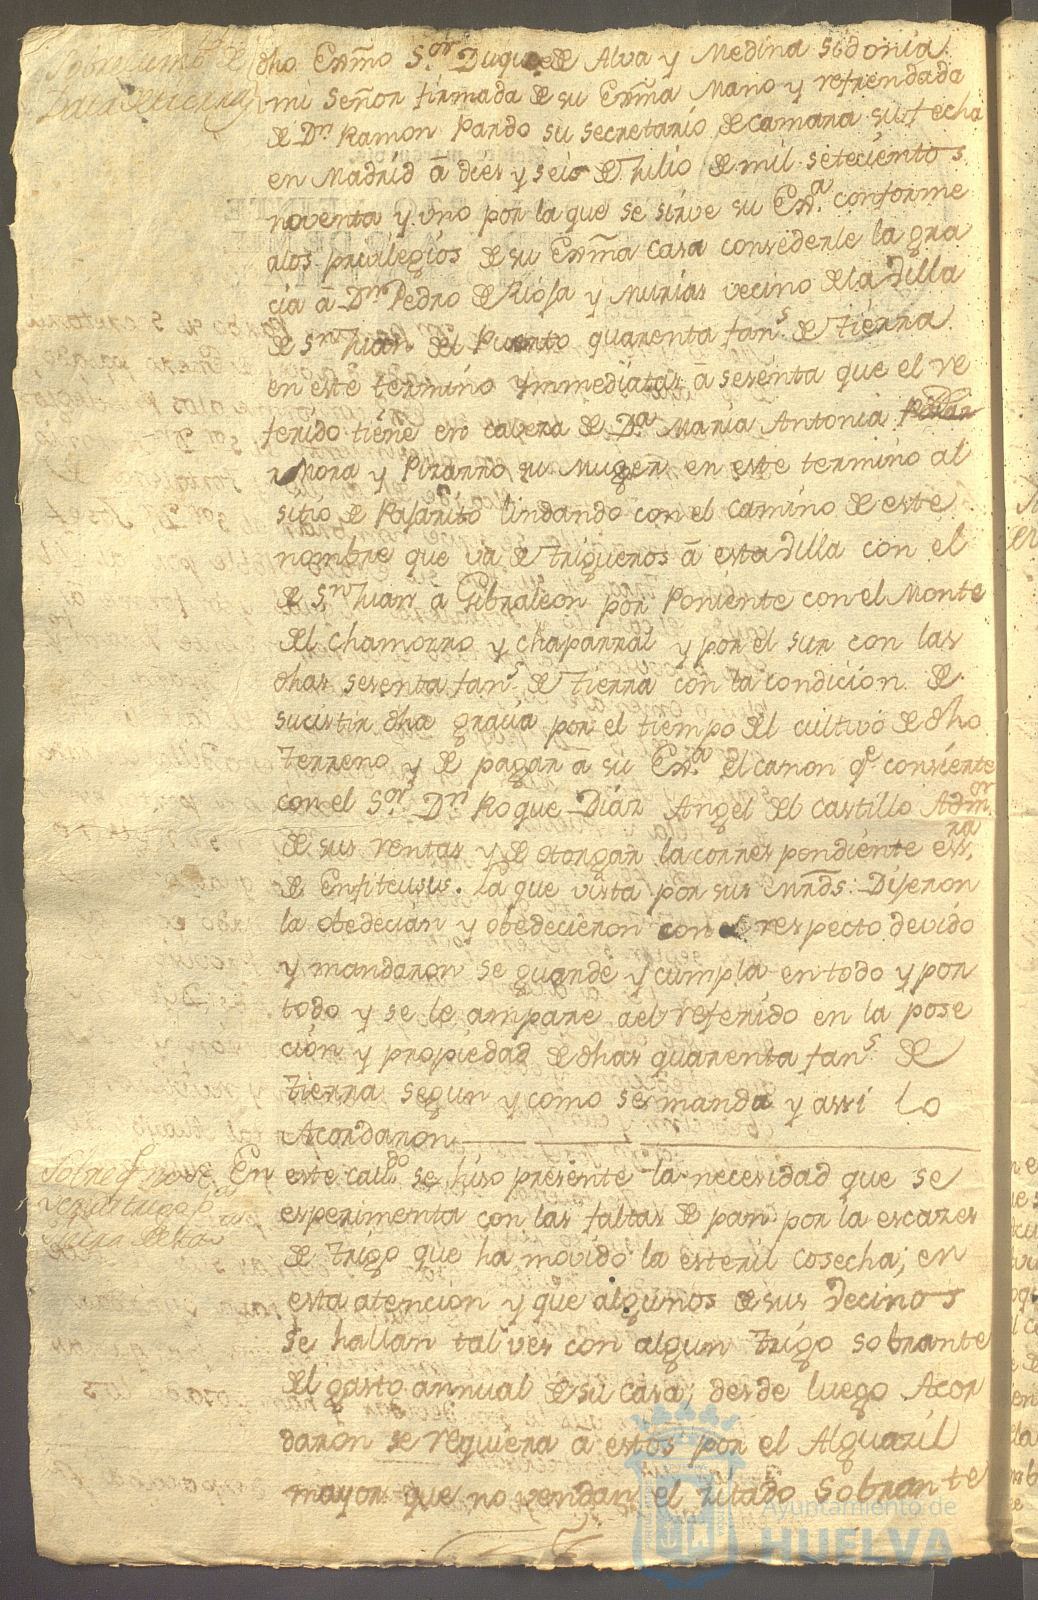 Sobre una de
Data de tierra
dho. Exmo Sor. Duque de Alva y Medina Sidonia
mi Señor firmada de su Exma Mano y refrendada
de Dn. Ramon Pardo su secretario de camara su fecha
en Madrid â dies y seis de Julio de mil setecientos
noventa y uno por la que se sirve su Exa. conforme
alos privilegios de su Exma casa consederle la gra
cia â Dn. Pedro de Riosa y Murias vecino de la Villa
de Sn. Juan del Puerto quarenta fans. de tierra
en este termino ynmediatas â sesenta que el re
ferido tiene en cavesa de Da. Maria Antonia
Mora y Pizarro su Muger en este termino al
sitio de Pajarito lindando con el camino de este
nombre que va de Trigueros â esta Villa con el
de Sn. Juan a Gibraleon por Poniente con el Monte
del chamorro y chaparral y por el sur con las
dhas sesenta fans. de tierra con la condicion de
sucistir dha gracia por el tiempo del cultivo de dho
Terreno y de pagar â su Exa. el canon qe. consierte
con el Sor. Dn. Roque Diaz Angel del Castillo Admor.
de sus rentas y de otorgar la correspondiente essra.
de Enfiteusis. La que vista por sus mrds: Dijeron
la obedecian y obedecieron con el respecto devido
y mandaron se guarde y cumpla en todo y por
todo y se le ampare ael referido en la pose
cion y propiedad de dhas quarenta fans. de
Tierra segun y como se manda y assi lo
Acordaron
Sobre qe. no se
venda trigo pa.
fuera de esta
En este cavdo. se hiso presente la necesidad que se
esperimenta con las faltas de pan por la escases
de trigo que ha movido la esteril cosecha; en
esta atencion y que algunos de sus vecinos
se hallan tal ves con algun trigo sobrante
del gasto annual de su casa; desde luego Acor
daron se requiera a estos por el Alguazil
mayor que no vendan el citado sobrante
Ayuntamiento de
HUELVA